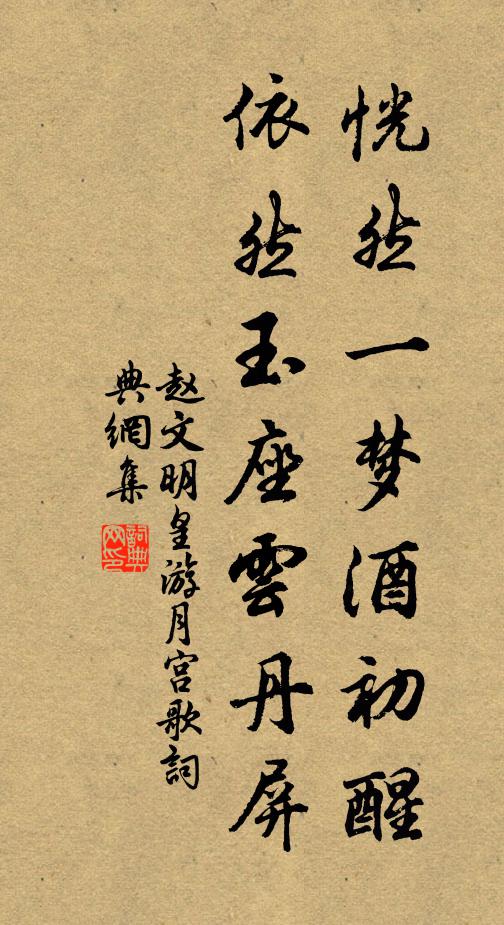 恍然一梦酒初醒
依然玉座雲丹屏
赵文明皇游月宫歌詞
典網集
詞典网印